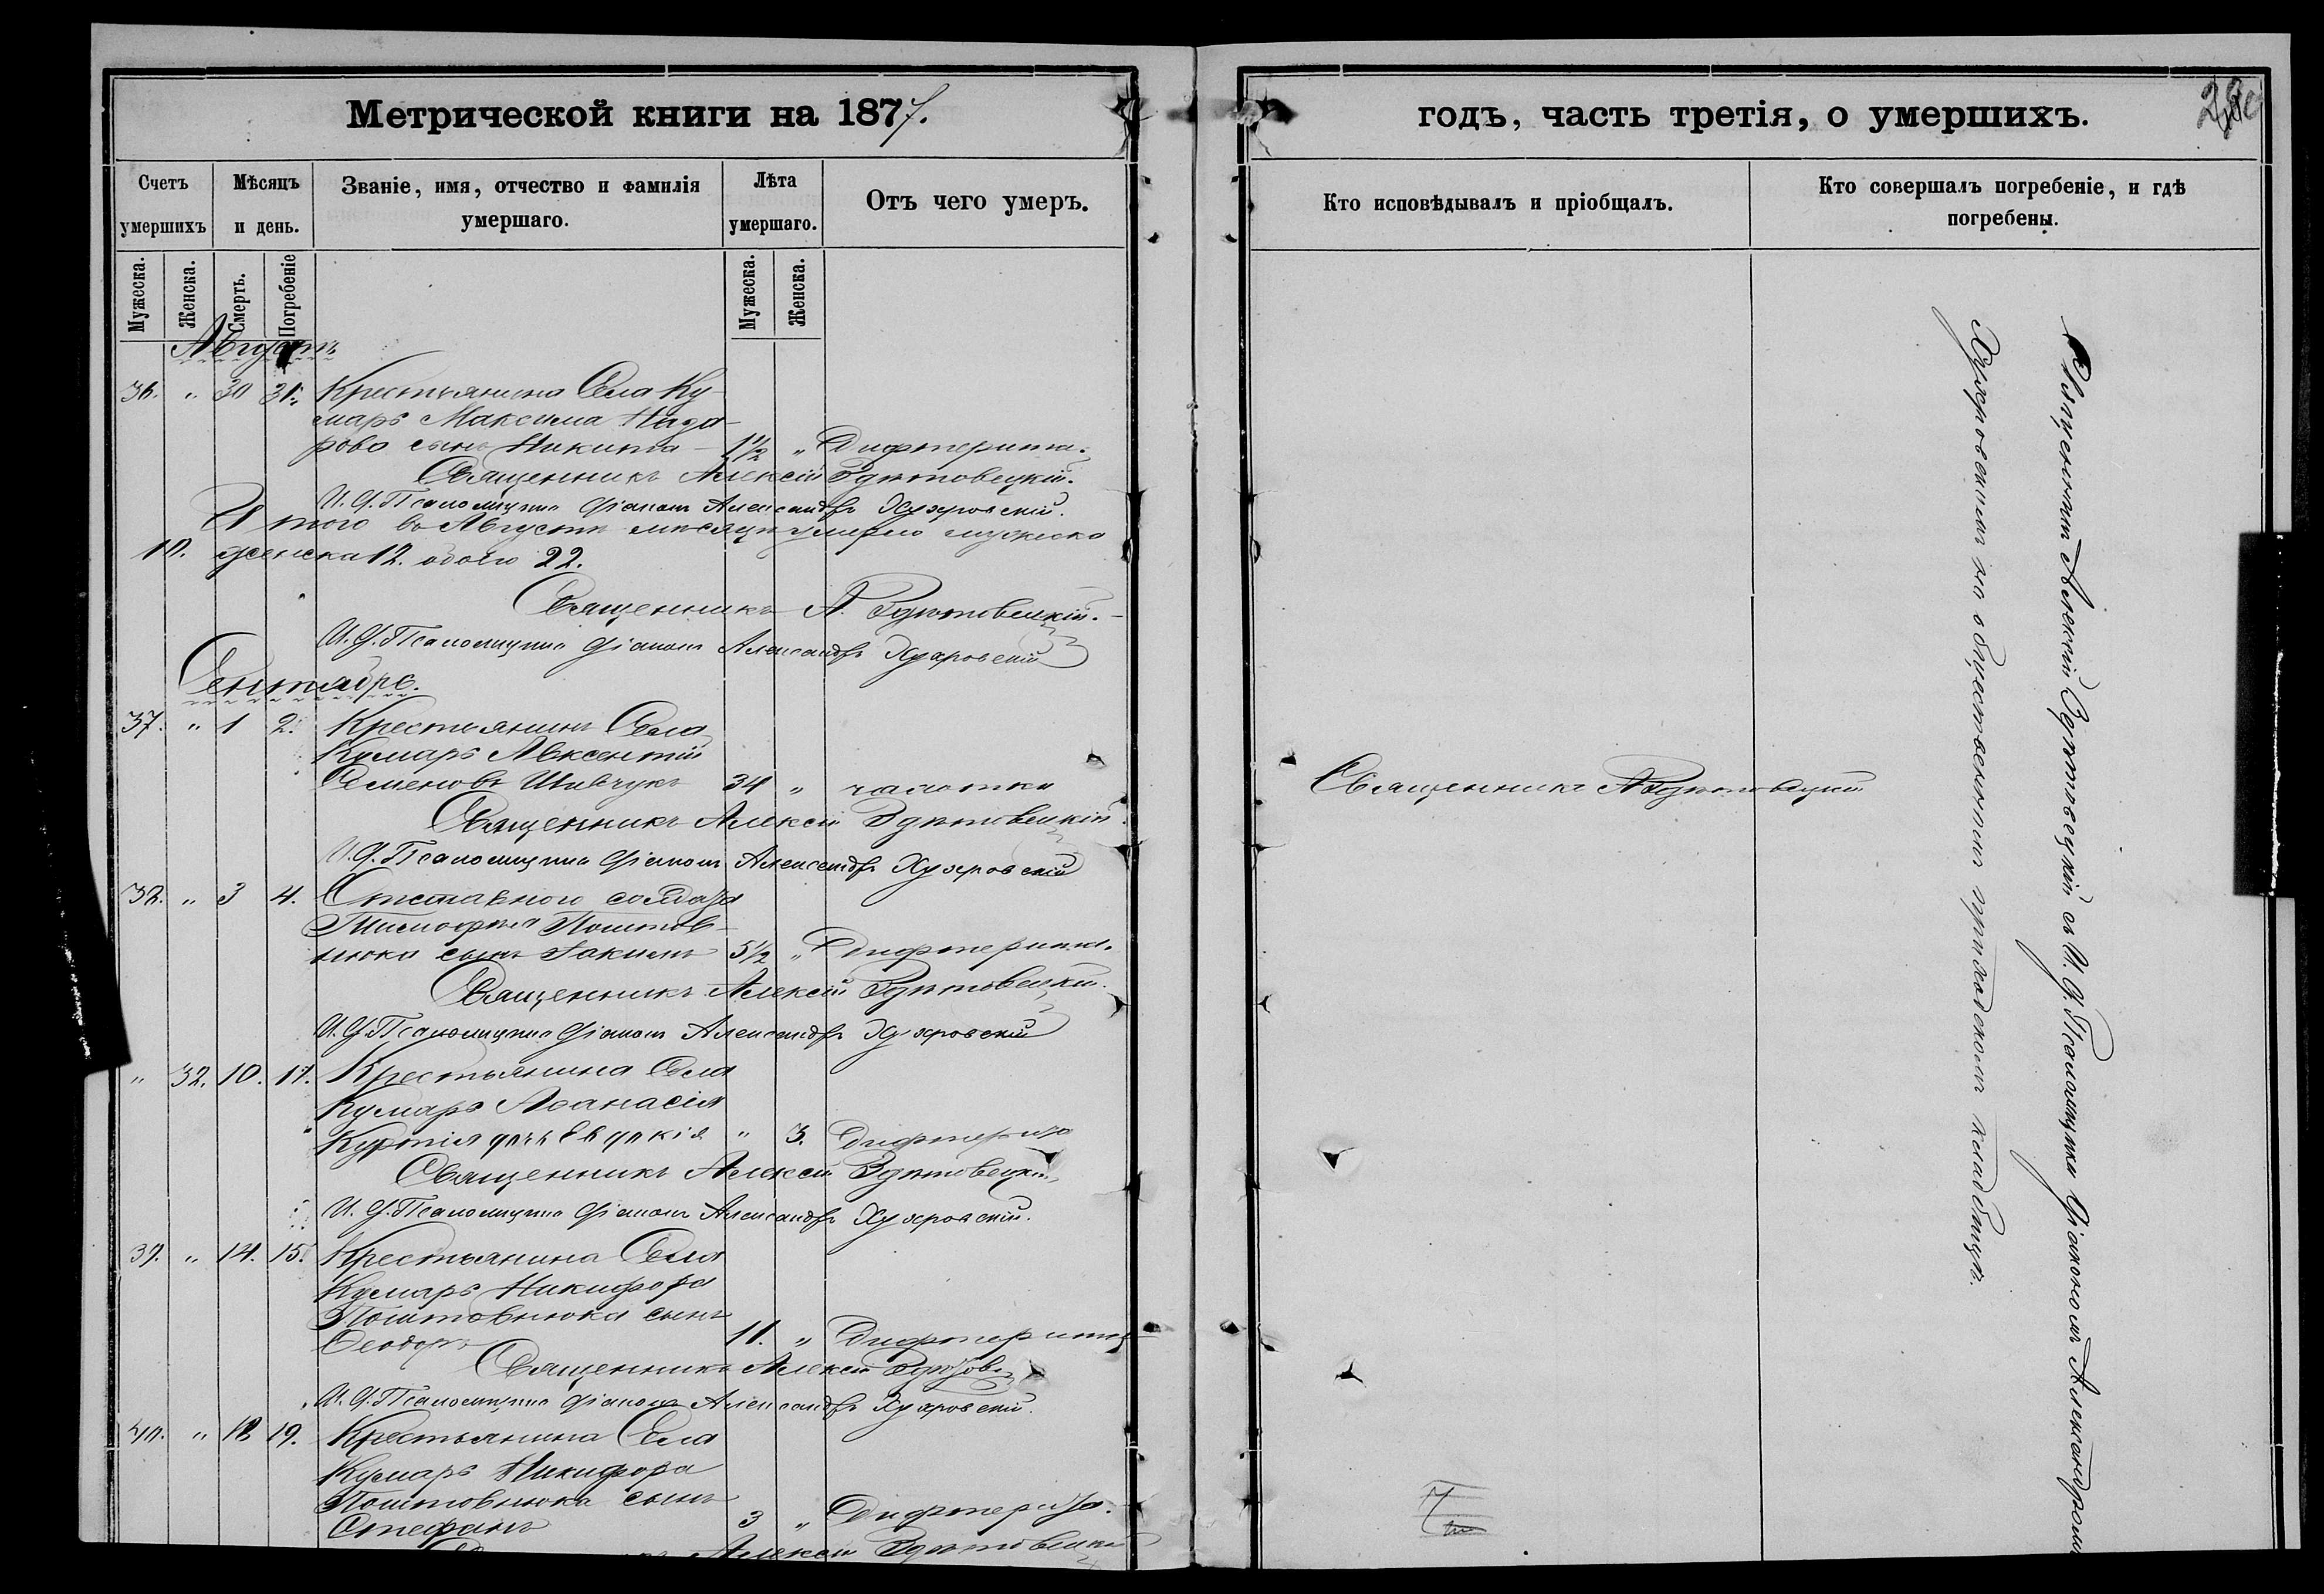 Метрической книги на 1877.
Счетъ умершихъ
Мѣсяцъ и день.
Званіе, имя, отчество и фамилія умершаго.
Лѣта умершаго.
Отъ чего умеръ.
Мужеска. Женска. Смерть. Погребеніе Мужеска. Женска.
Августъ
36. " 30 31. Крестьянина Села Ку-
маръ Максима
сынъ Никита 1 1/2 " Дифтерита.
Священникъ Алексій Здѣтовецкій.
И. д. Псаломщика Діаконъ Александръ
Итого въ Августѣ мѣсяцѣ умерло мужеска
10. женска 12. обоего 22.
Священникъ А. Здѣтовецкій.
И. д. Псаломщика Діаконъ Александръ
Сентябрь.
37. " 1 2. Крестьянинъ Села
Кумаръ Авксентій
Семеновъ Шевчукъ 34 " чахотки
Священникъ Алексій Здѣтовецкій.
И. д. Псаломщика Діаконъ Александръ
38. " 3 4. Отставного солдата
Тимофѣя Поштов-
нюка сынъ Іакимъ 5 1/2 " Дифтерита.
Священникъ Алексій Здѣтовецкій.
И. д. Псаломщика Діаконъ Александръ
" 32. 10. 11. Крестьянина Села
Кумаръ Аѳанасія
дочь Евдокія " 3. Дифтерита
Священникъ Алексій Здѣтовецкій
И. д. Псаломщика Діаконъ Александръ
39. " 14. 15. Крестьянина Села
Кумаръ Никифора
Поштовнюка сынъ
Ѳеодоръ 11. " Дифтерита
Священникъ Алексій
И. д. Псаломщика Діаконъ Александръ
40. " 18 19. Крестьянина Села
Кумаръ Никифора
Поштовнюка сынъ
Стефанъ 3 " Дифтерита.
Алексій Здѣтовецкій
годъ, часть третія, о умершихъ.
Кто исповѣдывалъ и пріобщалъ.
Кто совершалъ погребеніе, и гдѣ погребены.
Священникъ А Здѣтовецкій
Священникъ Алексій Здѣтовецкій съ И. д. Псаломщика Діакономъ Александромъ
на общественномъ приходскомъ кладбищѣ.